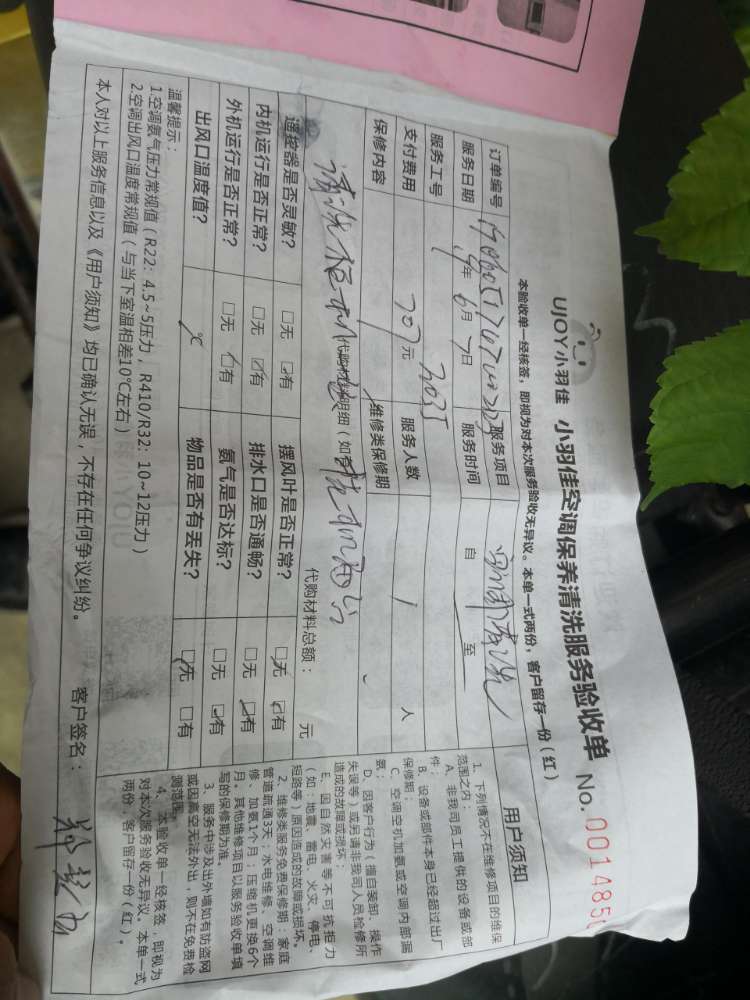 UJOY小羽佳 小羽佳空调保养清洗服务验收单 No. 001485
本验收单一经核签，即视为对本次服务验收无异议。本单一式两份，客户留存一份（红）
订单编号 服务项目
服务日期 年 6月7日 服务时间 自 至
服务工号 3035
支付费用 707元 服务人数 1 人
保修内容 维修类保修期
代购材料明细（如 代购材料总额： 元
遥控器是否灵敏？ □无 ☑有 摆风叶是否正常？ □无 ☑有
内机运行是否正常？ □无 ☑有 排水口是否通畅？ □无 ☑有
外机运行是否正常？ □无 ☑有 氨气是否达标？ □无 ☑有
出风口温度值？ ℃ 物品是否有丢失？ ☑无 □有
温馨提示：
1.空调氨气压力常规值（R22：4.5~5压力，R410/R32：10~12压力）
2.空调出风口温度常规值（与当下室温相差10℃左右）
本人对以上服务信息以及《用户须知》均已确认无误，不存在任何争议纠纷。 客户签名：
用户须知
1、下列情况不在维修项目的维保
范围之内：
A、非我司员工提供的设备或部
件；
B、设备或部件本身已经超过出厂
保修期；
C、空调空机加氨或空调内部漏
氨；
D、因客户行为（擅自装卸、操作
失误等）或另请非我司人员检修所
造成的故障或损坏；
E、因自然灾害等不可抗拒力
（如：地震、雷电、火灾、停电、
短路等）原因造成的故障或损坏。
2、维修类服务免费保修期：家庭
管道疏通3天；水电维修、空调维
修、加氨1个月；压缩机更换6个
月。其他维修项目以服务验收单填
写的保修期为准。
3、服务中涉及出外墙如有防盗网
或因高空无法外出，则不在免费检
测范围。
4、本验收单一经核签，即视为
对本次服务验收无异议，本单一式
两份，客户留存一份（红）。